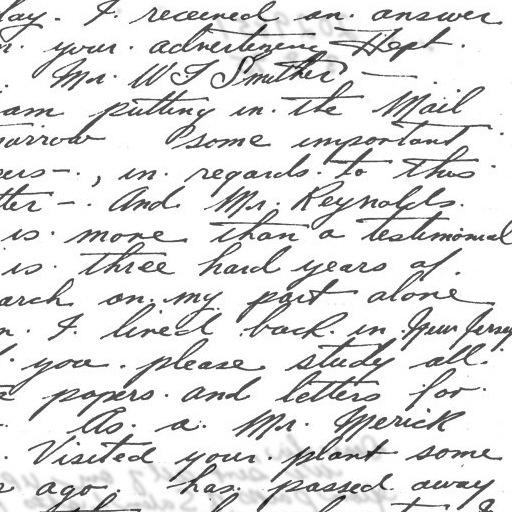 lay. I received an. answer
n. your. advertising Dept.
Mr. W T Smither —
am putting in. the Mail
morrow some important
pers-., in. regards. to this.
tter -. And Mr. Reynolds.
is. more than a testimonial
is. three hard years of.
arch on. my part alone
n. I. lived back. in. New Jersey
you. please study all
papers. and letters for.
As. a. Mr. Merick
. Visited your. plant some
s ago. has. passed away